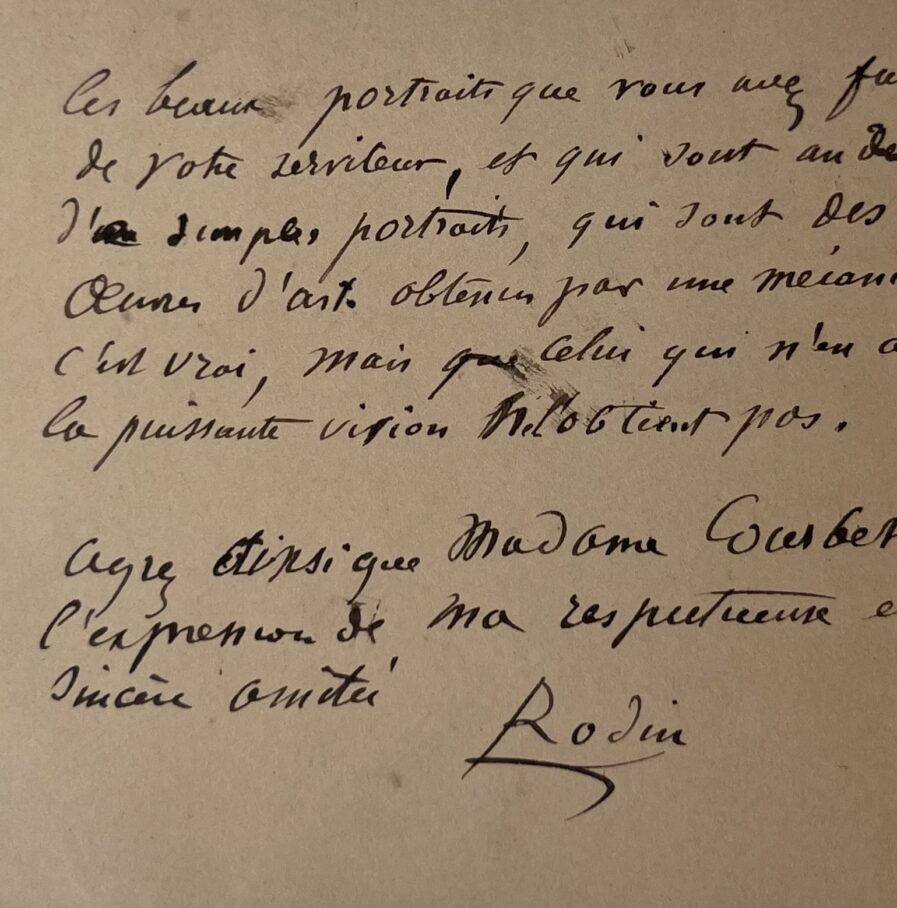 Ces beaux portraits que vous avez fa
de votre serviteur, et qui sont au de
d' simples portraits, qui sont des
Œuvres d'art. obtenus par une mécani
c'est vrai, mais que celui qui n'en a
la puissante vision n'obtient pas.
agrez ainsi que Madame Courbet
l'expression de ma respectueuse e
sincère amitié
Rodin